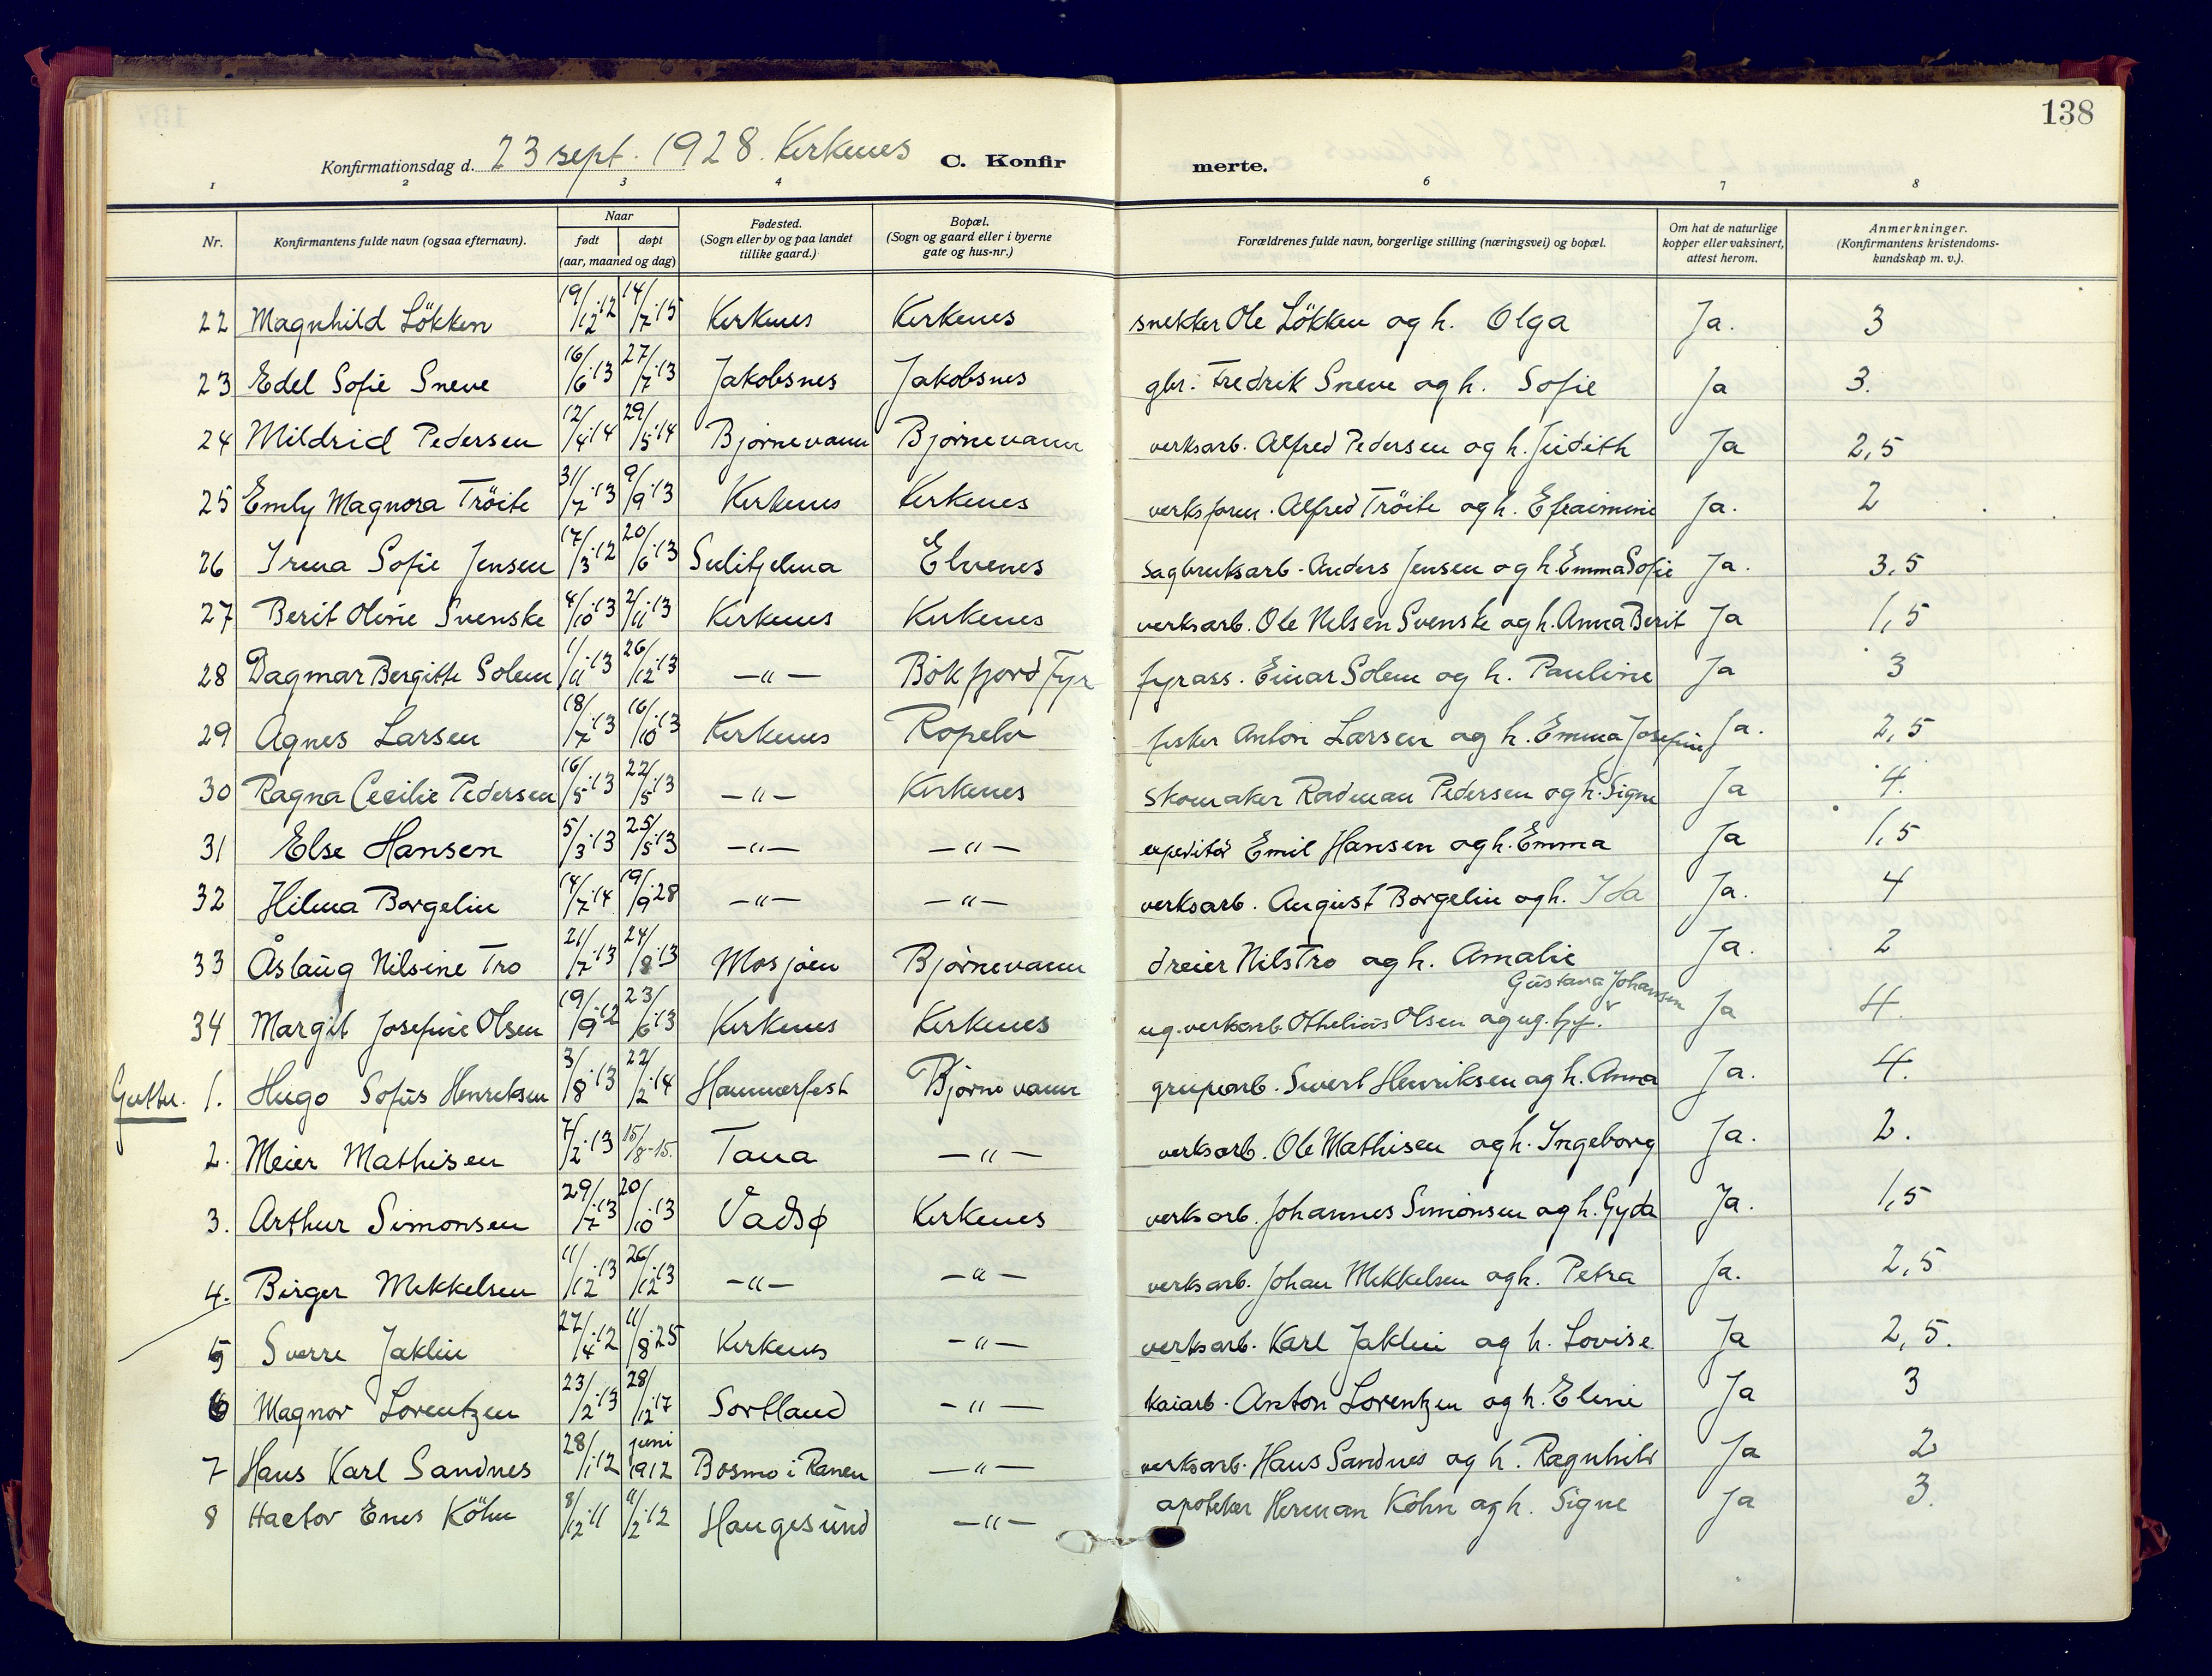 138
Konfirmationsdag d. 23 sept. 1928. Kirkenes C. Konfir merte.
1 2 3 4 6 7 8
Nr. Konfirmantens fulde navn (ogsaa efternavn). Naar født døpt (aar, maaned og dag) Fødested. (Sogn eller by og paa landet tillike gaard.) Bopæl. (Sogn og gaard eller i byerne gate og hus-nr.) Forældrenes fulde navn, borgerlige stilling (næringsvei) og bopæl. Om hat de naturlige kopper eller vaksinert, attest herom. Anmerkninger. (Konfirmantens kristendoms- kundskap m. v.).
22 Magnhild Lökken 19/12-12 14/7-15 Kirkenes Kirkenes snekker Ole Lökken og h. Olga Ja. 3
23 Edel Sofie Sneve 16/6-13 27/7-13 Jakobsnes Jakobsnes gbr. Fredrik Sneve og h. Sofie Ja 3.
24 Mildrid Pedersen 12/4-14 29/5-14 Bjørnevann Bjørnevann verksarb. Alfred Pedersen og h. Judith Ja 2,5
25 Emly Magnora Tröite 31/7-13 9/9-13 Kirkenes Kirkenes verksform. Alfred Tröite og h. Efraimine Ja. 2
26 Irma Sofie Jensen 17/3-12 20/6-13 Sulitjelma Elvenes sagbruksarb. Anders Jensen og h. Emma Sofie Ja. 3,5
27 Berit Oline Svenske 4/10-13 2/11-13 Kirkenes Kirkenes verksarb. Ole Nilsen Svenske og h. Anna Berit Ja 1,5
28 Dagmar Bergitte Solem 1/11-13 26/12-13 —"— Bökfjord Fyr fyrass. Einar Solem og h. Pauline Ja 3
29 Agnes Larsen 18/7-13 16/10-13 Kirkenes Ropelv fisker Anton Larsen og h. Emma Josefine Ja. 2,5
30 Ragna Cecilie Pedersen 16/5-13 22/5-13 —"— Kirkenes skomaker Rodman Pedersen og h. Signe Ja 4.
31 Else Hansen 5/3-13 25/5-13 —"— —"— expeditør Emil Hansen og h. Emma Ja 1,5
32 Hilma Borgelin 14/7-14 19/9-28 —"— —"— verksarb. August Borgelin og h. Ida Ja. 4
33 Åslaug Nilsine Tro 21/7-13 24/8-13 Mosjøen Bjørnevann dreier Nils Tro og h. Amalie Ja. 2
Gustava Johansen
34 Margit Josefine Olsen 19/9-12 23/6-13 Kirkenes Kirkenes ug. verksarb. Othelius Olsen og ug. Ja 4.
Gutter. 1. Hugo Sofus Henriksen 3/8-13 22/2-14 Hammerfest Bjørnevann grupearb. Sivert Henriksen og h. Anna Ja. 4.
2. Meier Mathisen 7/2-13 15/8-15. Tana —"— verksarb. Ole Mathisen og h. Ingeborg Ja. 2.
3. Arthur Simonsen 29/7-13 20/10-13 Vadsø Kirkenes verksarb. Johannes Simonsen og h. Gyda Ja. 1,5
4. Birger Mikkelsen 11/12-13 26/12-13 —"— —"— verksarb. Johan Mikkelsen og h. Petra Ja. 2,5
5 Sverre Jaklin 27/4-12 11/8-25 Kirkenes —"— verksarb. Karl Jaklin og h. Lovise Ja 2,5.
6 Magnor Lorentzen 23/2-13 28/12-17 Sortland —"— kaiarb. Anton Lorentzen og h. Eline Ja 3
7 Hans Karl Sandnes 28/1-12 juni 1912 Bosmo i Ranen —"— verksarb. Hans Sandnes og h. Ragnhild Ja 2
8 Hactor Enes Köhn 8/12-11 11/2-12 Haugesund —"— apoteker Herman Köhn og h. Signe Ja 3.